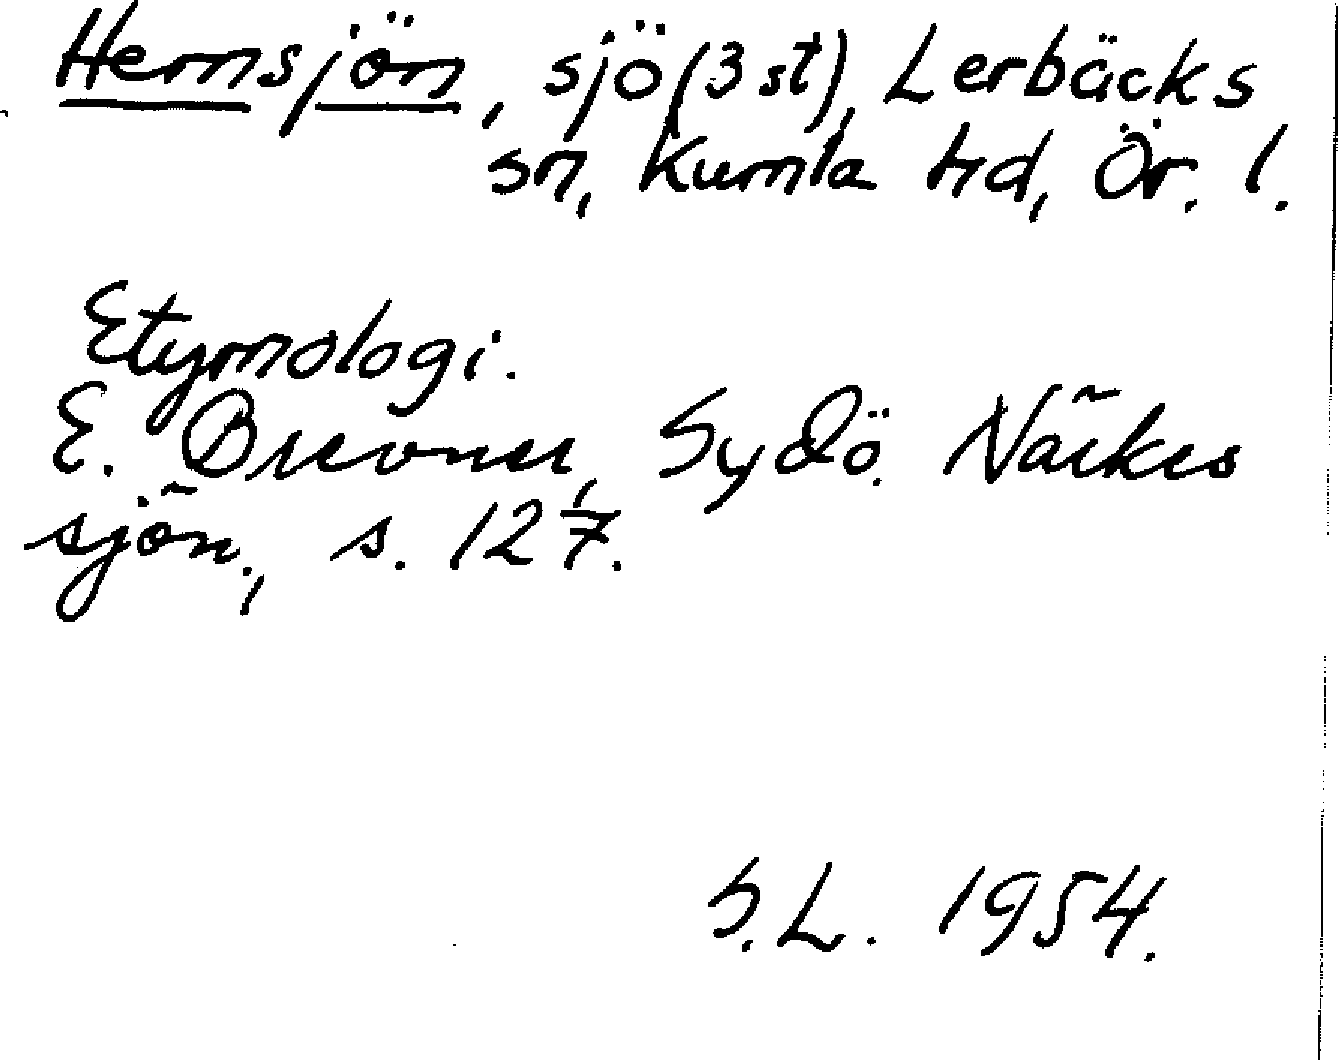 Hemsjön, sjö (3 st), Lerbäcks
sn, Kumla hd, Ör. l.
Etymologi.
E. Brevner, Sydö. Närkes
sjön., s. 127.
S.L. 1954.